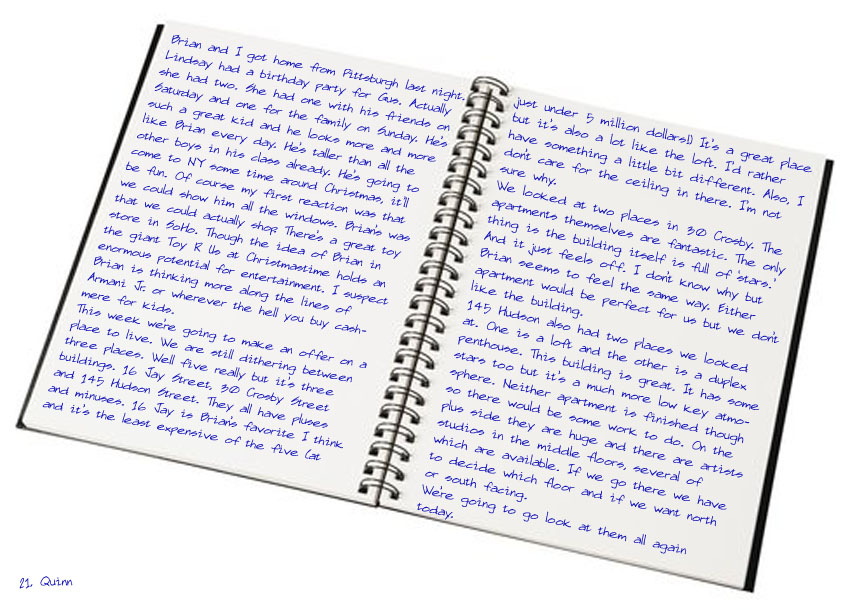 Brian and I got home from Pittsburgh last night.
Lindsay had a birthday party for Gus. Actually
she had two. She had one with his friends on
Saturday and one for the family on Sunday. He's
such a great kid and he looks more and more
like Brian every day. He's taller than all the
other boys in his class already. He's going to
come to NY some time around Christmas, it'll
be fun. Of course my first reaction was that
we could show him all the windows. Brian's was
that we could actually shop. There's a great toy
store in SoHo. Though the idea of Brian in
the giant Toy R Us at Christmastime holds an
enormous potential for entertainment. I suspect
Brian is thinking more along the lines of
Armani Jr. or wherever the hell you buy cash-
mere for kids.
This week we're going to make an offer on a
place to live. We are still dithering between
three places. Well five really but it's three
buildings. 16 Jay Street, 30 Crosby Street
and 145 Hudson Street. They all have pluses
and minuses. 16 Jay is Brian's favorite I think
and it's the least expensive of the five (at
just under 5 million dollars!) It's a great place
but it's also a lot like the loft. I'd rather
have something a little bit different. Also, I
don't care for the ceiling in there. I'm not
sure why.
We looked at two places in 30 Crosby. The
apartments themselves are fantastic. The only
thing is the building itself is full of 'stars.'
And it just feels off. I don't know why but
Brian seems to feel the same way. Either
apartment would be perfect for us but we don't
like the building.
145 Hudson also had two places we looked
at. One is a loft and the other is a duplex
penthouse. This building is great. It has some
stars too but it's a much more low key atmo-
sphere. Neither apartment is finished though
so there would be some work to do. On the
plus side they are huge and there are artists
studios in the middle floors, several of
which are available. If we go there we have
to decide which floor and if we want north
or south facing.
We're going to go look at them all again
today.
21. Quinn